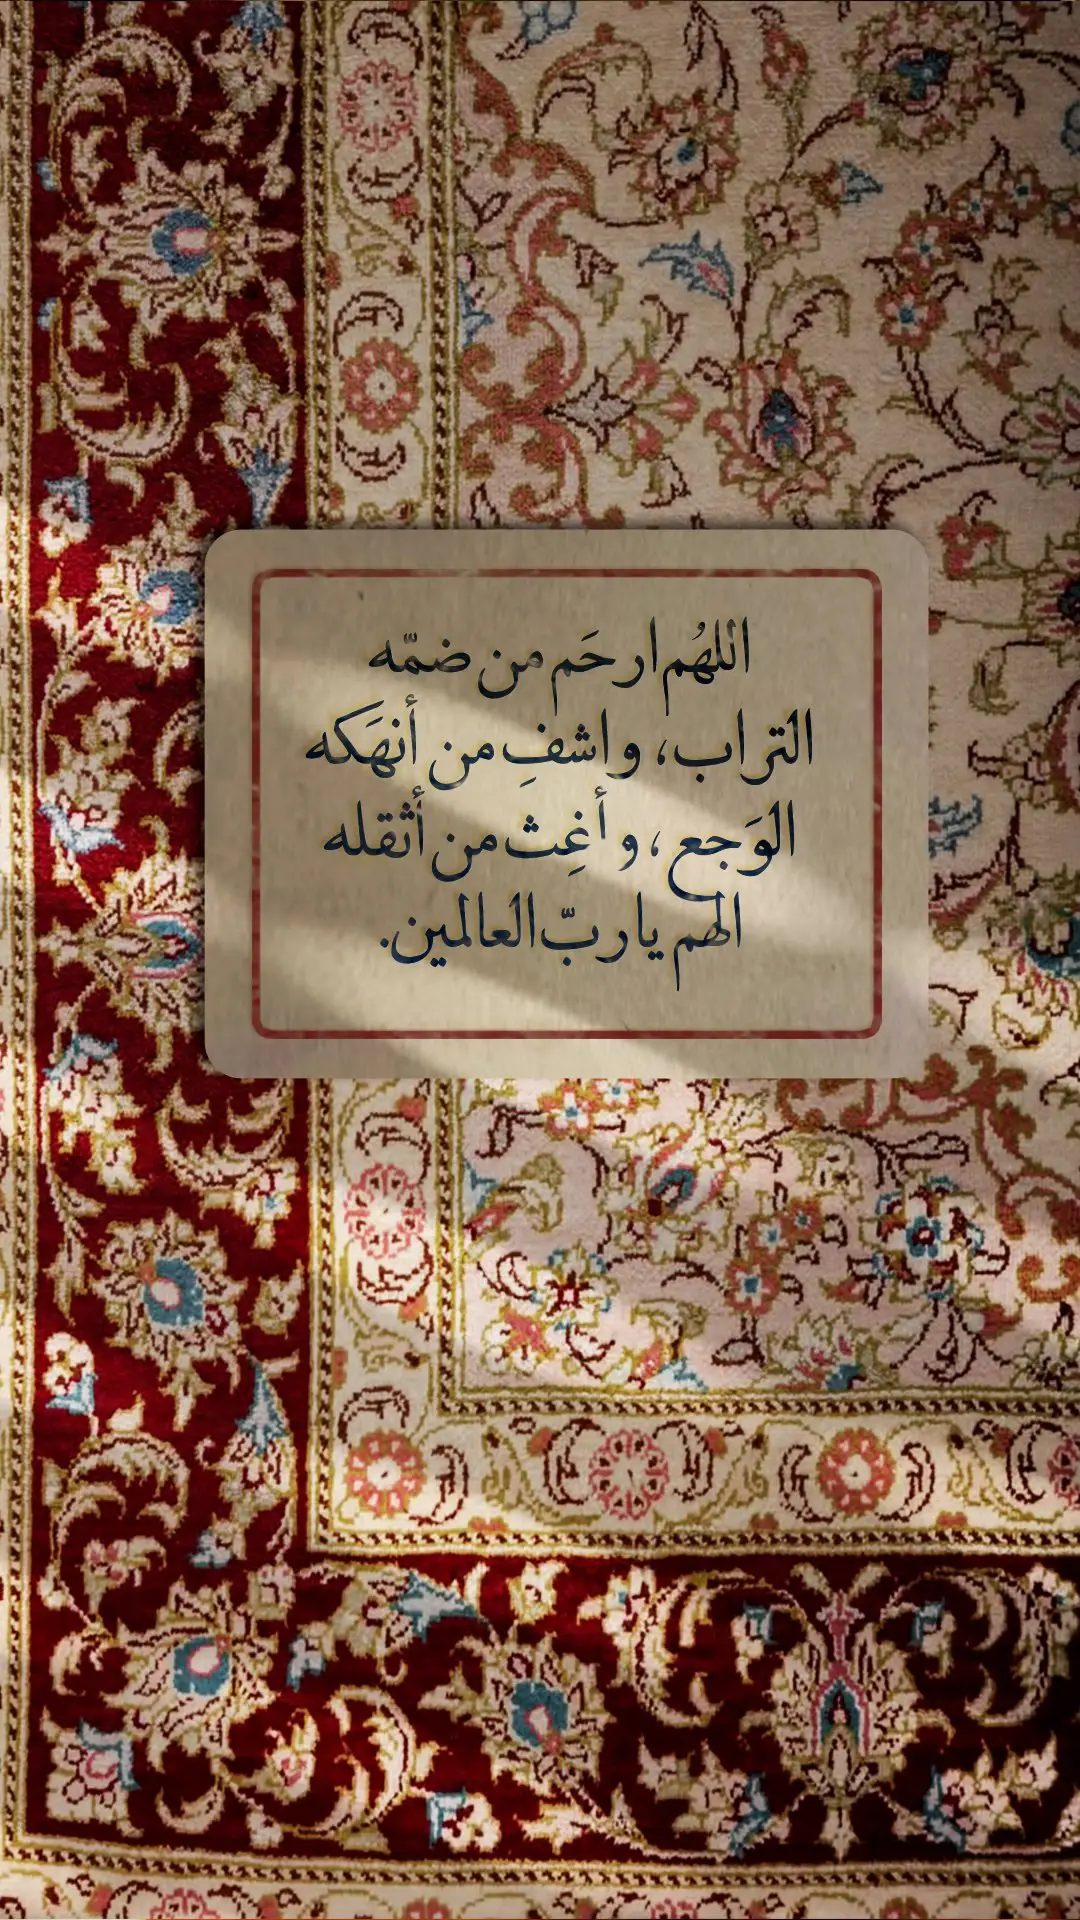 اللهُم ارحَم من ضمّه
التراب، واشفِ من أنهَكه
الوَجع، وأغِث من أثقله
الهم يا ربّ العالمين.